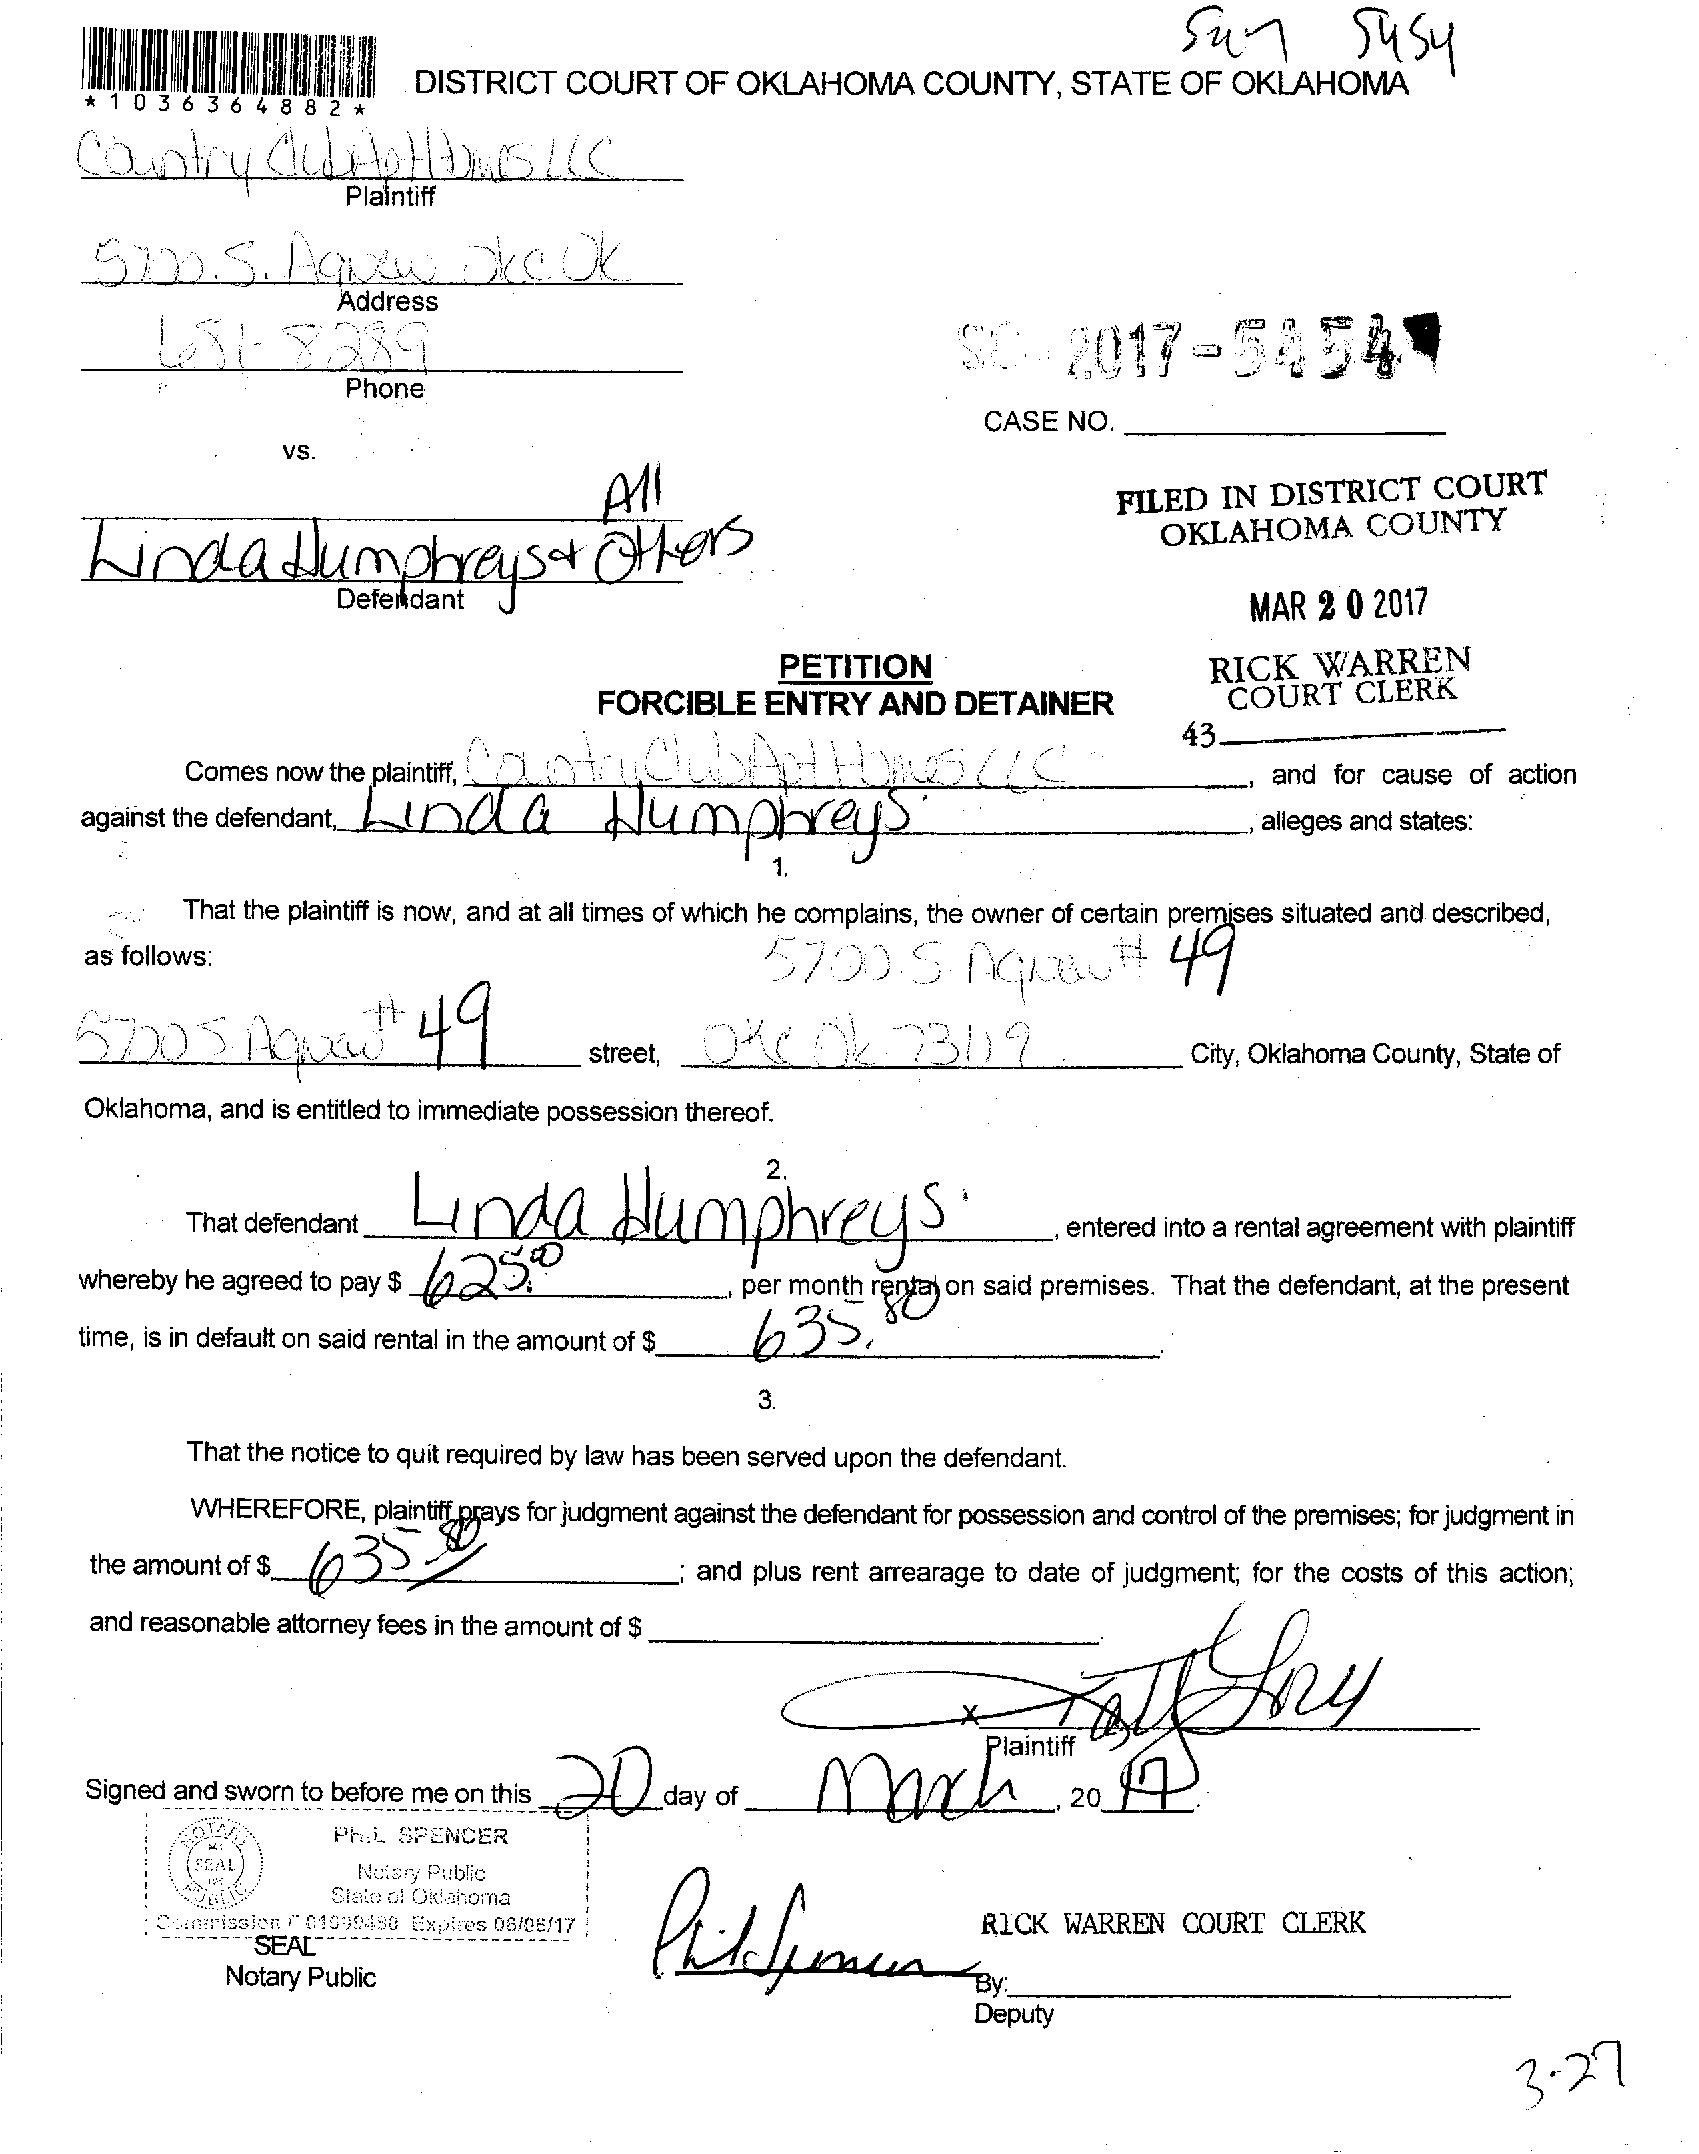 5454
*1036364882*
DISTRICT COURT OF OKLAHOMA COUNTY, STATE OF OKLAHOMA
Country Club Apt Homes LLC
Plaintiff
5700 S. Agnew OKC OK
Address
681-8289
Phone
SC-2017-5454
CASE NO.
vs.
All
Linda Humphreys & Others
Defendant
FILED IN DISTRICT COURT
OKLAHOMA COUNTY
MAR 20 2017
RICK WARREN
COURT CLERK
43
PETITION
FORCIBLE ENTRY AND DETAINER
Comes now the plaintiff, Country Club Apt Homes LLC, and for cause of action
against the defendant, Linda Humphreys, alleges and states:
1.
That the plaintiff is now, and at all times of which he complains, the owner of certain premises situated and described,
as follows: 5700 S Agnew # 49
5700 S Agnew # 49 street, OKC OK 73119 City, Oklahoma County, State of
Oklahoma, and is entitled to immediate possession thereof.
2.
That defendant Linda Humphreys, entered into a rental agreement with plaintiff
whereby he agreed to pay $ 625.00, per month rental on said premises. That the defendant, at the present
time, is in default on said rental in the amount of $ 635.80.
3.
That the notice to quit required by law has been served upon the defendant.
WHEREFORE, plaintiff prays for judgment against the defendant for possession and control of the premises; for judgment in
the amount of $ 635.80; and plus rent arrearage to date of judgment; for the costs of this action;
and reasonable attorney fees in the amount of $
x
Plaintiff
Signed and sworn to before me on this 20 day of March, 2017.
NOTARY
SEAL
PUBLIC
PHIL SPENCER
Notary Public
State of Oklahoma
Commission # 01099480 Expires 06/06/17
SEAL
Notary Public
Phil Spencer
RICK WARREN COURT CLERK
By:
Deputy
3-27